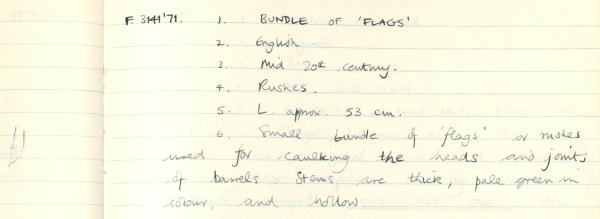 F. 3141'71. 1. BUNDLE OF 'FLAGS'
2. English
3. Mid 20th century.
4. Rushes.
5. L. approx. 53 cm.
6. Small bundle of 'flags' or rushes
used for caulking the heads and joints
of barrels. Stems are thick, pale green in
colour, and hollow